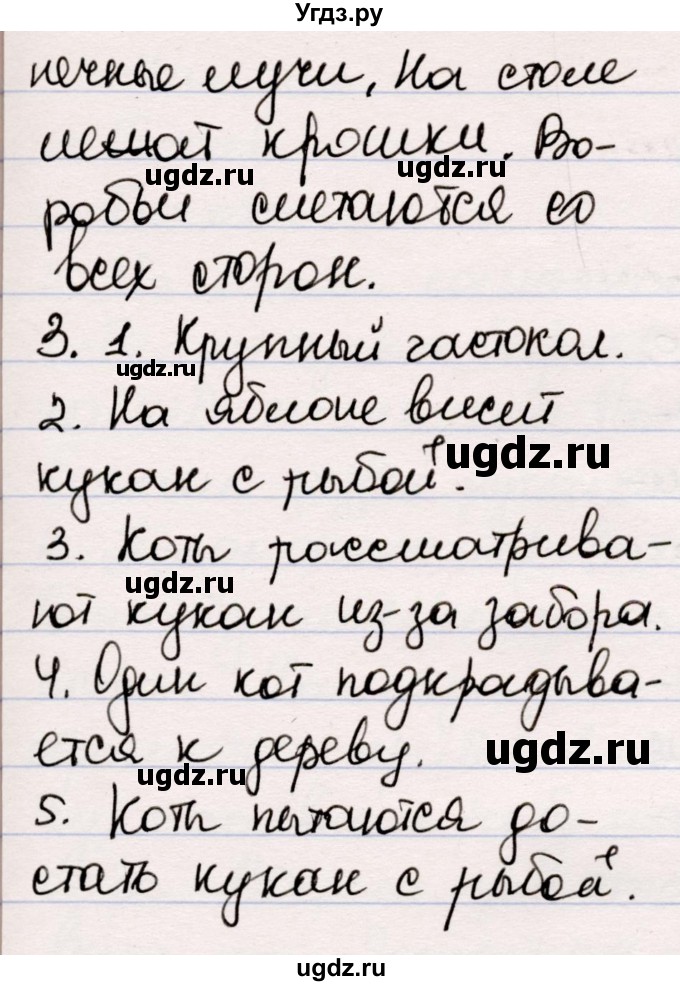 Угдз.ру
нечные лучи, На столе
лежат крошки. Во-
робьи слетаются со
всех сторон.
3. 1. Крупный частокол.
2. На яблоне висит
кукан с рыбой.
3. Коты рассматрива-
ют кукан из-за забора.
4. Один кот подкрадыва-
ется к дереву.
5. Коты пытаются до-
стать кукан с рыбой.
ugdz.ru
ugdz.ru
ugdz.ru
ugdz.ru
ugdz.ru
ugdz.ru
ugdz.ru
ugdz.ru
ugdz.ru